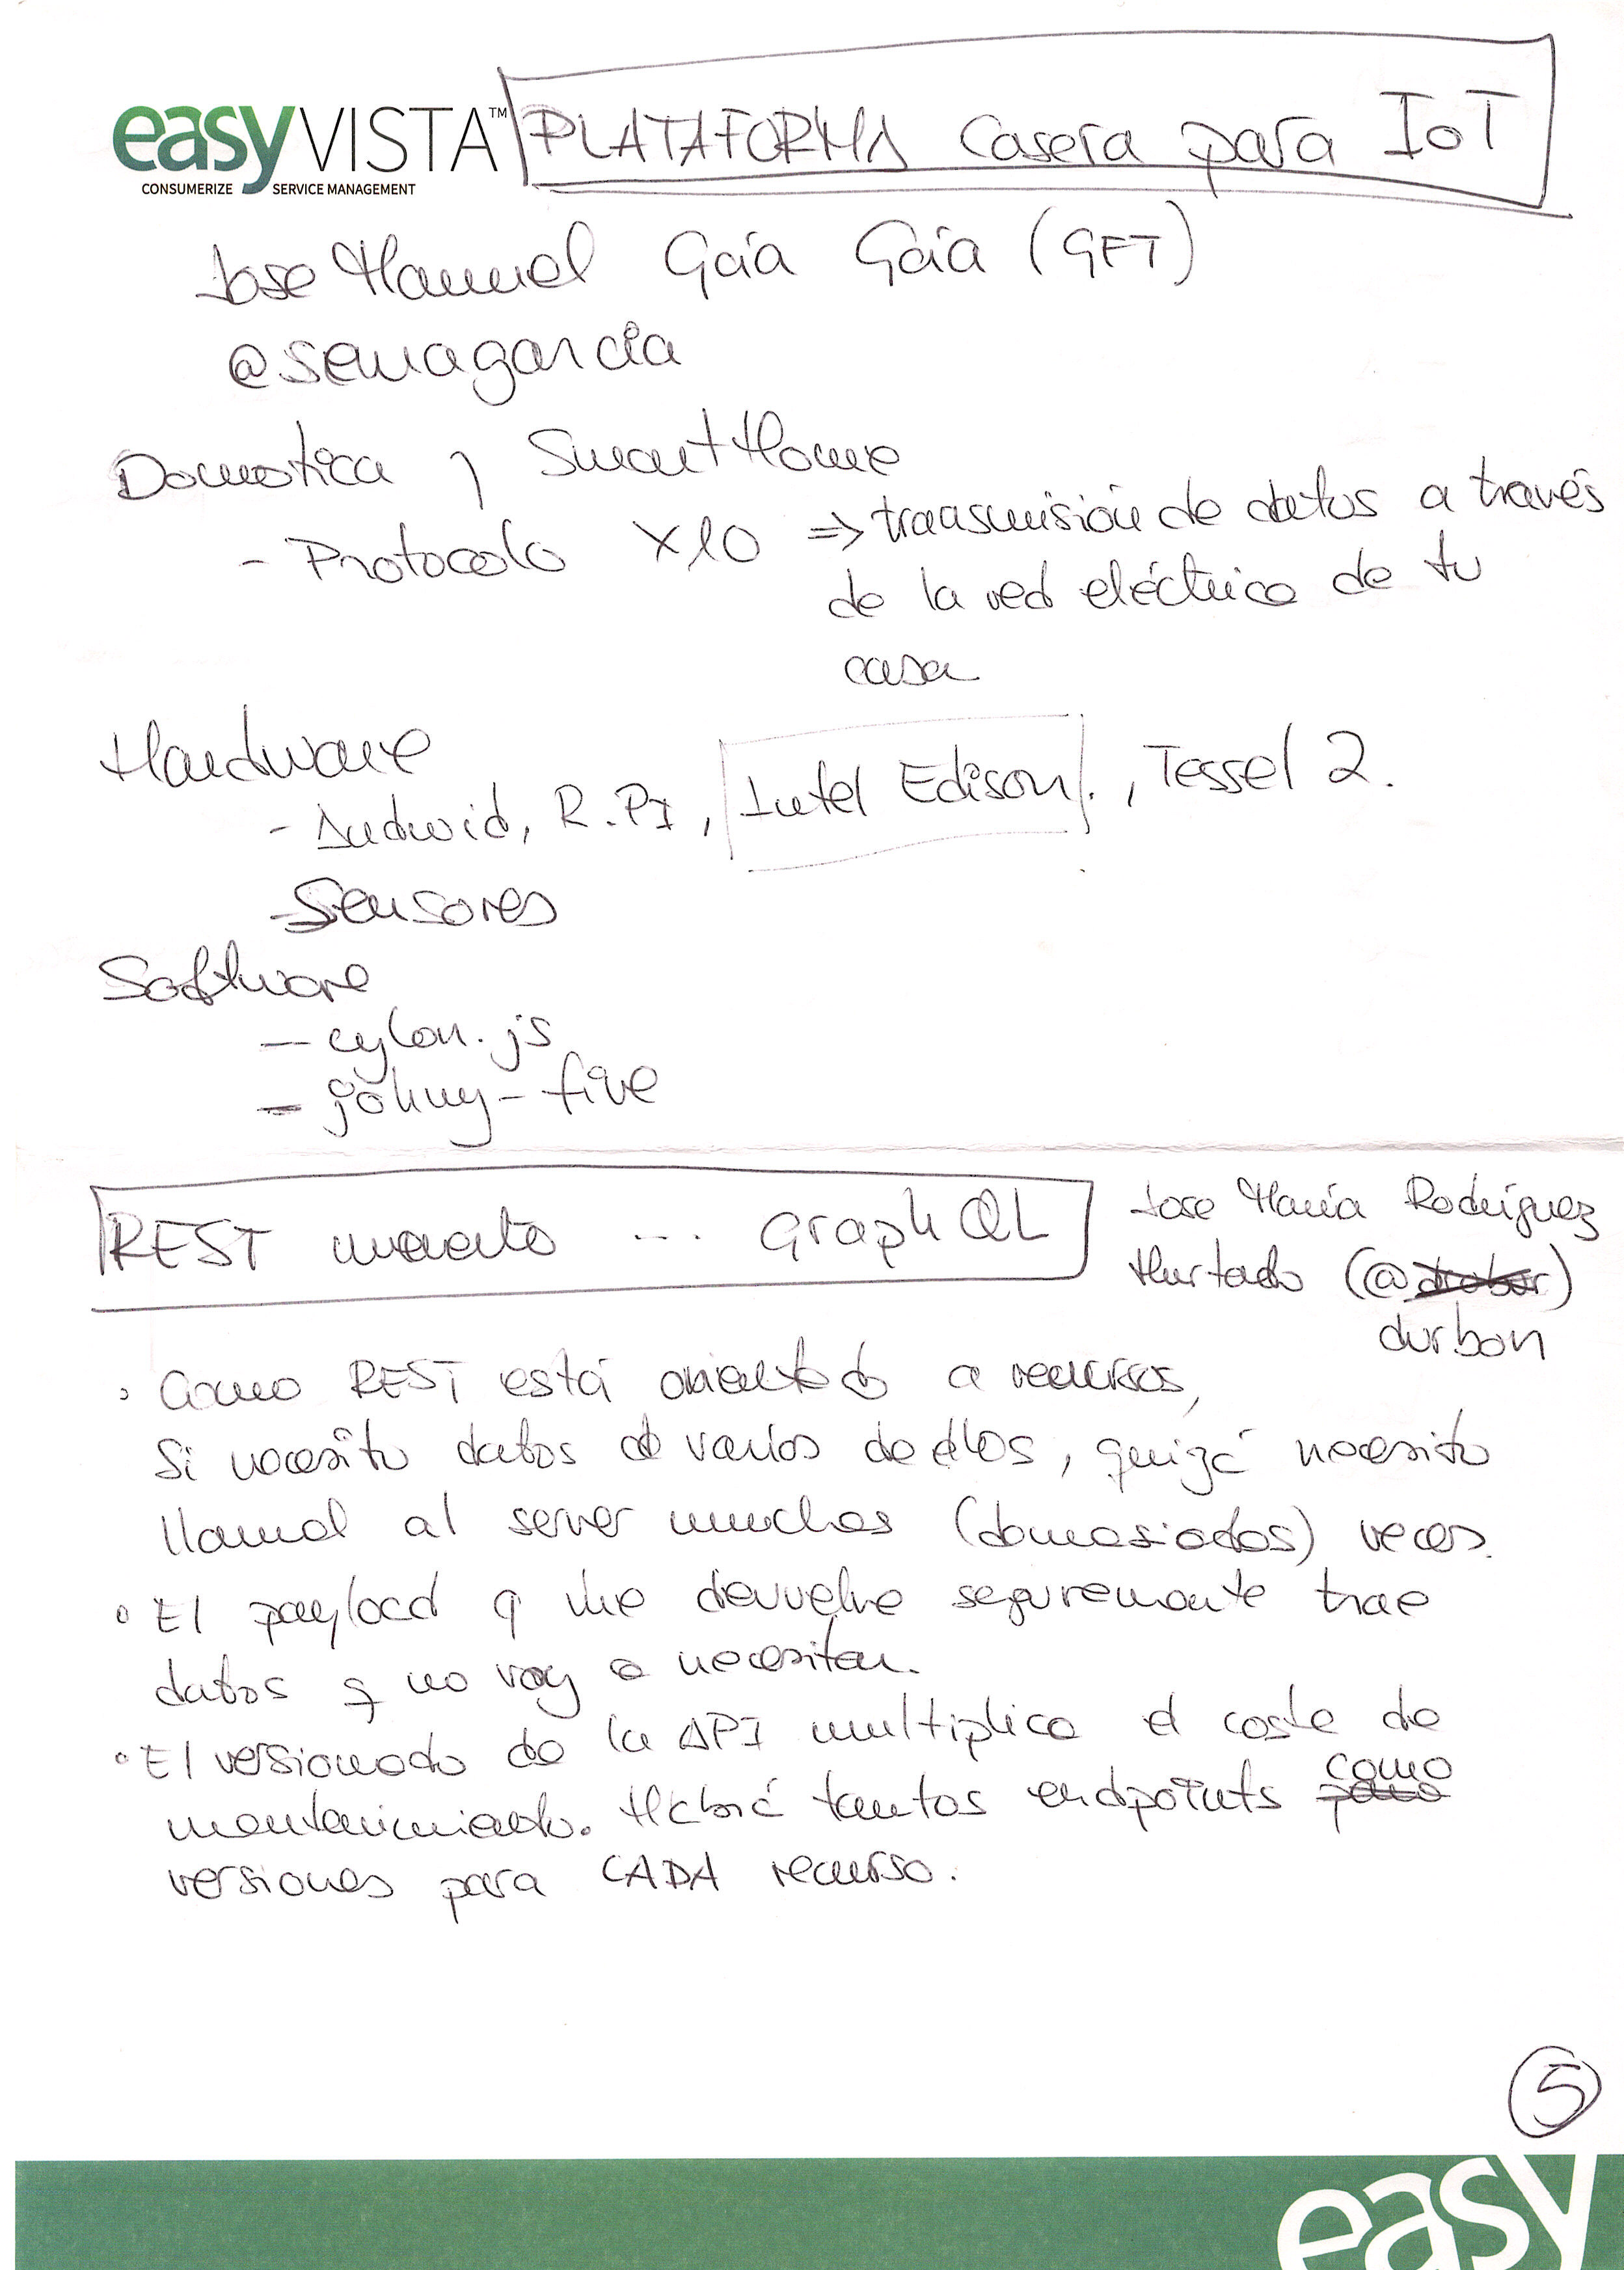 easyVISTA™
CONSUMERIZE SERVICE MANAGEMENT
PLATAFORMA casera para IoT
Jose Manuel Gcía Gcía (GFT)
@semagarcia
Domotica y SmartHome
- Protocolo X10 => transmisión de datos a través
de la red eléctrica de tu
casa
Hardware
- Android, R.PI, Intel Edison, Tessel 2.
- Sensores
Software
- cylon.js
- johny-five
REST muerto ... GraphQL
Jose María Rodríguez
Hurtado (@drobur)
durbon
· Como REST está orientado a recursos,
Si necesito datos de varios de ellos, quizá necesito
llamar al server muchas (demasiadas) veces.
· El payload q me devuelve seguramente trae
datos q no voy a necesitar.
· El versionado de la API multiplica el coste de
mantenimiento. Habrá tantos endpoints como
versiones para CADA recurso.
5
easy